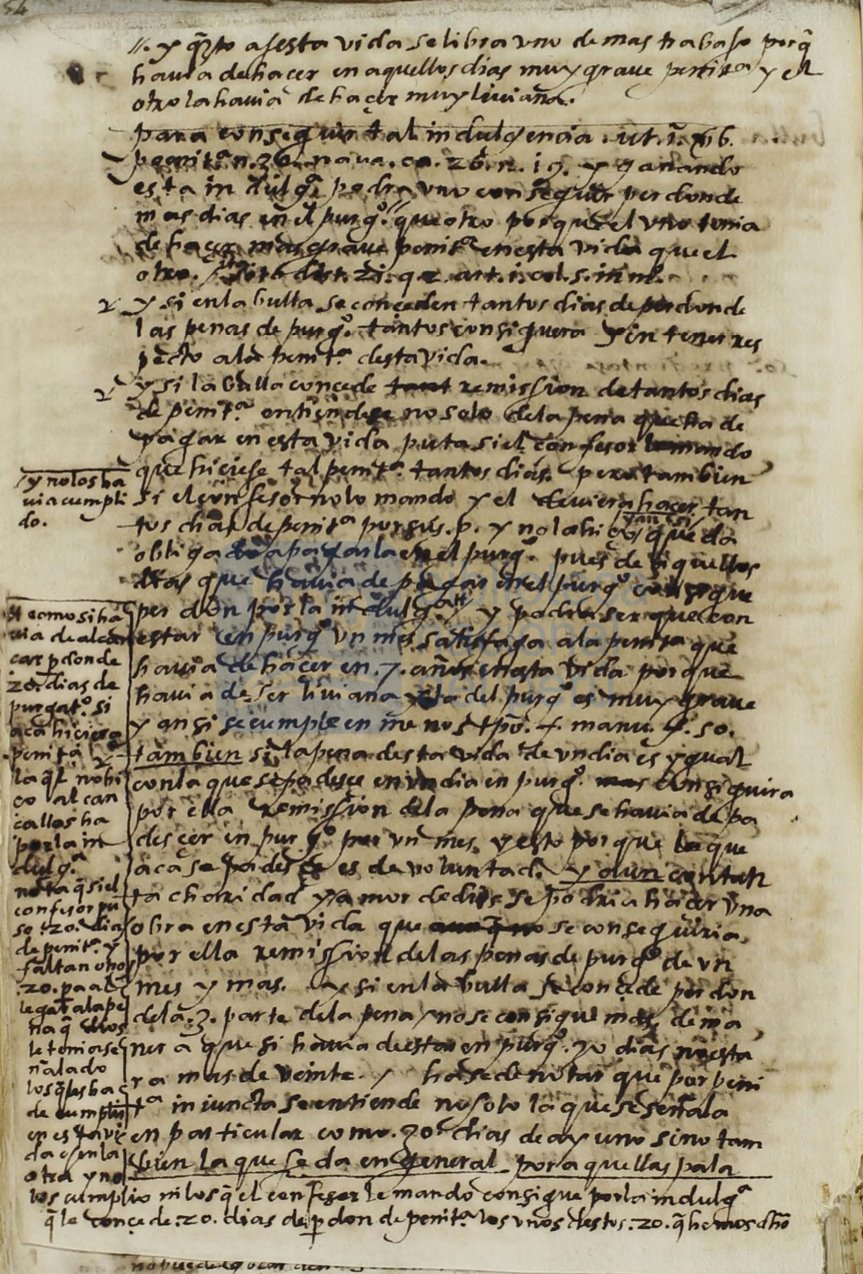 54
//. y q̃nto a esta vida se libra uno de mas trabajo porq̃
havia de hacer en aquellos dias muy grave penitª y el
otro la havia de hacer muy liviana.
para conseguir tal indulgencia. ut.
penitª n. 36. nava. ca. 26. n. 19. y ganando
esta indulgª podra uno conseguir perdon de
mas dias en el purgº. que otro porque el uno tenia
de hacer mas grave penitª en esta vida que el
otro. dist. 21. q2. art. 1. col. 5.
y si en la bulla se conceden tantos dias de perdon de
las penas de purgº. tantos consiguira sin tener res
pecto a la penitª. desta vida.
y si la bulla concede remission de tantos dias
de penitª. entiendese no solo de la pena que ha de
pagar en esta vida puta si el confesor mando
que hiciese tal penitª. tantos dias. pero tambien
si el confesor no lo mando y el deviera hacer tan
tos dias de penitª por sus. p. y no la hiço que da
obligado a pagarla en el purgº. pues de aquellos
dias que havia de pagar en el purgº consigue
perdon por la indulgª y podra ser que con
estar en purgº un mes satisfaga a la penitª que
havia de hacer en. 7. años en esta vida porque
havia de ser liviana y la del purgº es muy grave
y ansi se cumple en menos tpõ. f. manu. 4. 50.
tambien si la pena desta vida de un dia es ygual
con la que se padesce en un dia en purgº. consiguira
por ella remission de la pena que se havia de pa
desçer en purgº por un mes. y esto porque la que
aca se padesçe es de voluntad. y aun con tan
ta charidad y amor de dios se podria hacer una
obra en esta vida que se conseguiria.
por ella remission de las penas de purgº de un
mes y mas. y si en la bulla se conçede perdon
de la .3. parte de la pena no se consigue mas de ma
nera que si havia de estar en purgº. 30 dias no esta
ra mas de veinte. / hase de notar que por peni
tª injuncta se entiende no solo la que se señala
en particular como. 30. dias de ayuno sino tam
bien la que se da en general por aquellas pala
y no los ha
via cumpli
do.
como si ha
via de alcan
car pdon de
20. dias de
purgatº. si
aca hiciera
penitª
la q̃l no hi
ço alcan
callos ha
por la in
dulgª.
nota q̃ si el
confesor pu
so 30. dias
de penitª. y
faltan
20. para
legar a la pe
na q̃ dios
le tenia se
ñalado
los q̃les ha
de cumplir
en esta vi
da o en la
otra y no
los cumplio ni los q̃ el confesor le mando consigue por la indulgª
q̃ le conçede .20. dias de pdon de penitª los unos destos .20. q̃ hemos dhõ